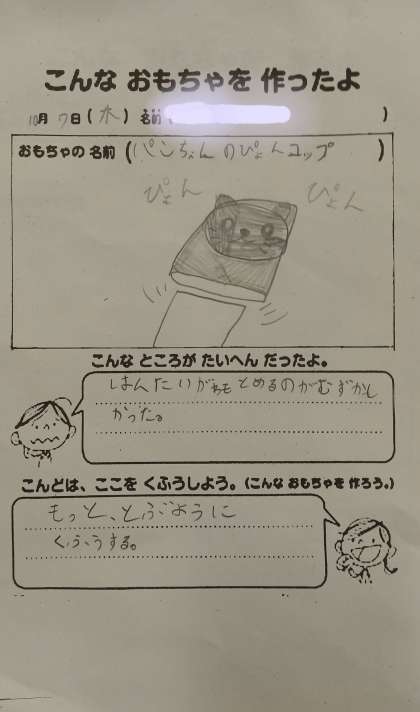 こんな おもちゃを 作ったよ
10月 7日(水) 名前( )
おもちゃの 名前(パンちゃんのぴょんコップ)
ぴょん ぴょん
こんな ところが たいへん だったよ。
はんたいがわもとめるのがむずかし
かった。
こんどは、ここを くふうしよう。(こんな おもちゃを 作ろう。)
もっと、とぶように
くふうする。